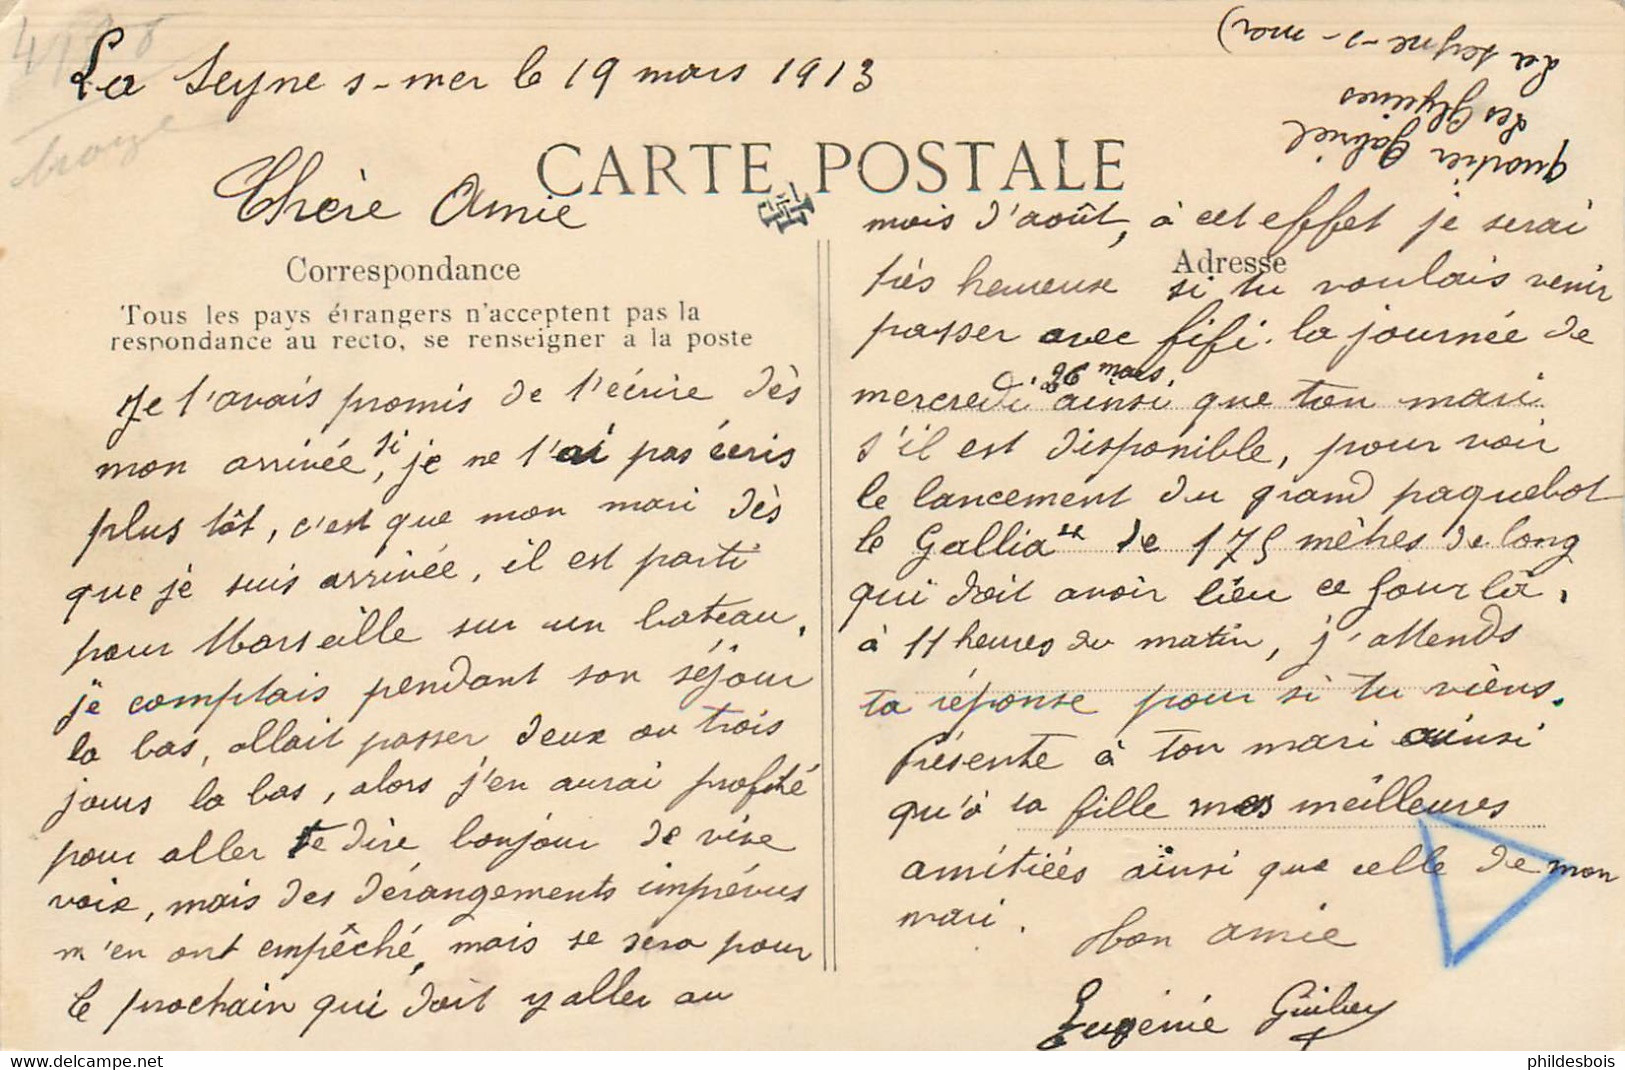 La Seyne s-mer le 19 mars 1913
quartier Gabriel
Les Glycines
La Seyne-s-mer)
CARTE POSTALE
Chère Amie
Correspondance
Tous les pays étrangers n'acceptent pas la
respondance au recto, se renseigner a la poste
Je t'avais promis de t'écrire dès
mon arrivée, si je ne t'ai pas écris
plus tôt, c'est que mon mari dès
que je suis arrivée, il est parti
pour Marseille sur un bateau,
je comptais pendant son séjour
la bas, allait passer deux ou trois
jours la bas, alors j'en aurai profité
pour aller te dire bonjour de vive
voix, mais des dérangements imprévus
m'en ont empêché, mais se sera pour
le prochain qui doit y aller au
mois d'août, à cet effet je serai
Adresse
très heureuse si tu voulais venir
passer avec fifi. la journée de
mercredi 26 mars ainsi que ton mari
s'il est disponible, pour voir
le lancement du grand paquebot
le Gallia de 175 mètres de long
qui doit avoir lieu ce jour là,
à 11 heures du matin, j'attends
ta réponse pour si tu viens.
Présente à ton mari ainsi
qu'à ta fille mes meilleures
amitiées ainsi que celle de mon
mari.
Ton amie
Eugénie
phildesbois
La Seyne sur Mer
delcampe.net